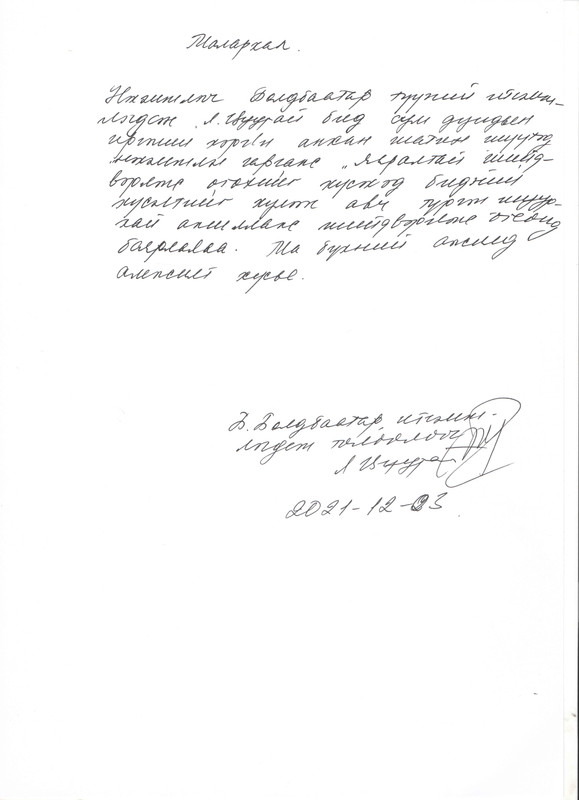 Талархал.
Нэхэмжлэгч Болдбаатар түүний итгэмж-
лэгдсэн Л. Цэцэгээ бид сум дундын
иргэний хэргийн анхан шатны шүүхэд
нэхэмжлэл гаргаж "яаралтай шийд-
вэрлэж өгөхийг хүсэхэд бидний
хүсэлтийг хүлээж авч түргэн шуур-
хай ажиллаж шийдвэрлэж өгсөнд
баярлалаа. Та бүхний ажилд
амжилт хүсье.
Б. Болдбаатар итгэмж-
лэгдсэн төлөөлөгч
Л
2021-12-03